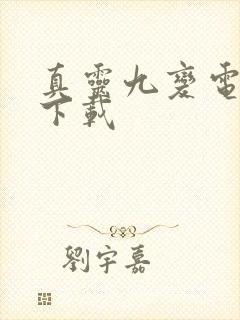 真靈九變電
下載
劉宇嘉